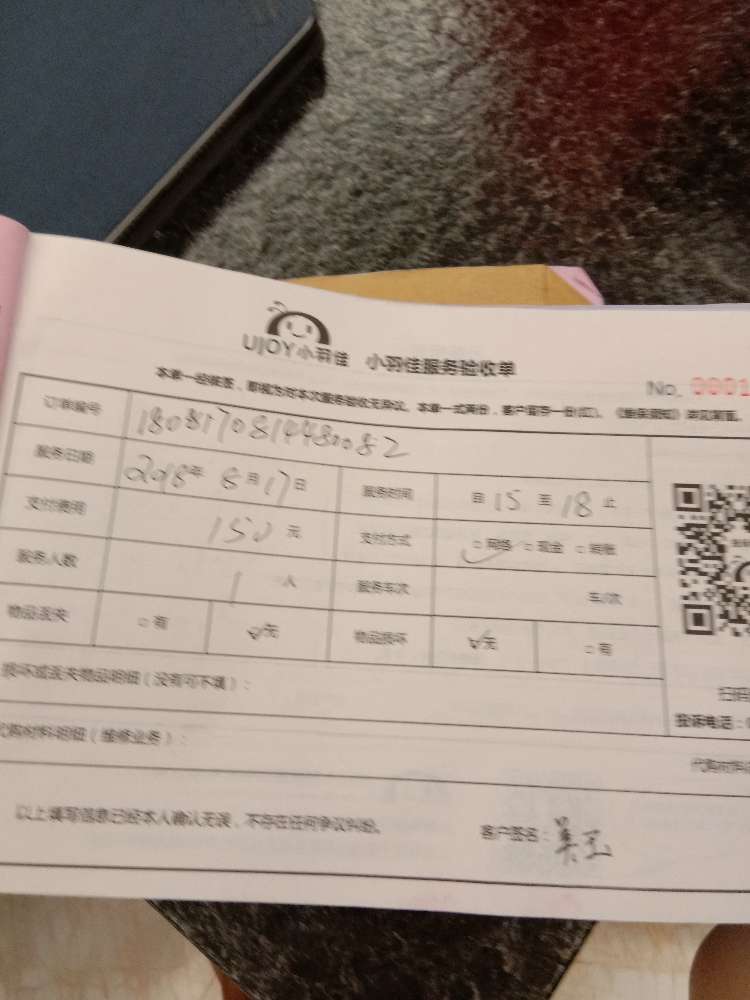 UJOY小羽佳 小羽佳服务验收单
No. 0001
本单一经签署，即视为对本次服务验收无异议。本单一式两份，客户留存一份(红)。
订单编号 1808170814480082
服务日期 2018年 8月17日 服务时间 自 15 至 18 止
支付费用 150 元 支付方式 □网络 □现金 □转账
服务人数 1 人 服务车次 车/次
物品丢失 □有 ☑无 物品损坏 ☑无 □有
损坏或丢失物品明细（没有可不填）：
扫码
投诉电话：0
代购材料明细（维修业务）：
代购材料
以上填写信息已经本人确认无误，不存在任何争议纠纷。 客户签名：吴玉